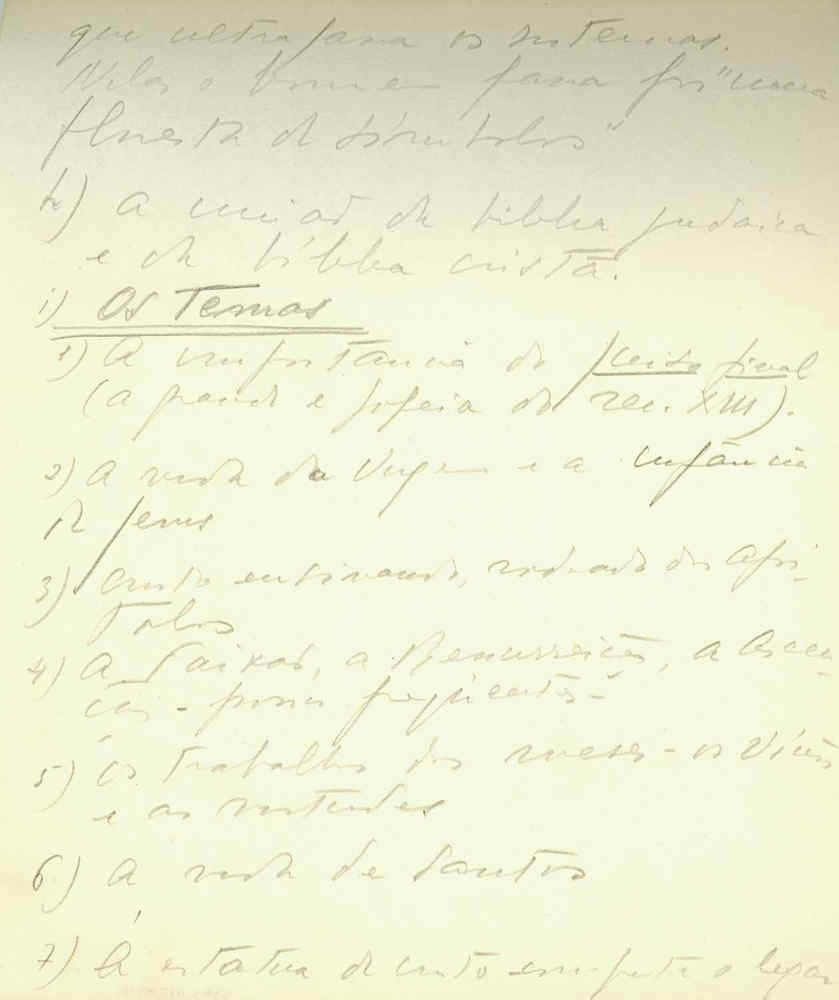 que ultrapassa os sistemas.
Nelas o homem passa por "uma
floresta de símbolos"
h) A união da bíblia judaica
e da bíblia cristã.
i) Os Temas
1) A importância do juízo final
(a grande epopeia do sec. XIII).
2) A vida da Virgem e a infância
de Jesus
3) Cristo ensinando, rodeado dos após-
tolos
4) A Paixão, a Ressurreição, a Ascen-
ção - pouco freqüentes -
5) Os trabalhos dos meses - os Vícios
e as virtudes
6) A vida de Santos
7) A estátua de Cristo ocupa o lugar